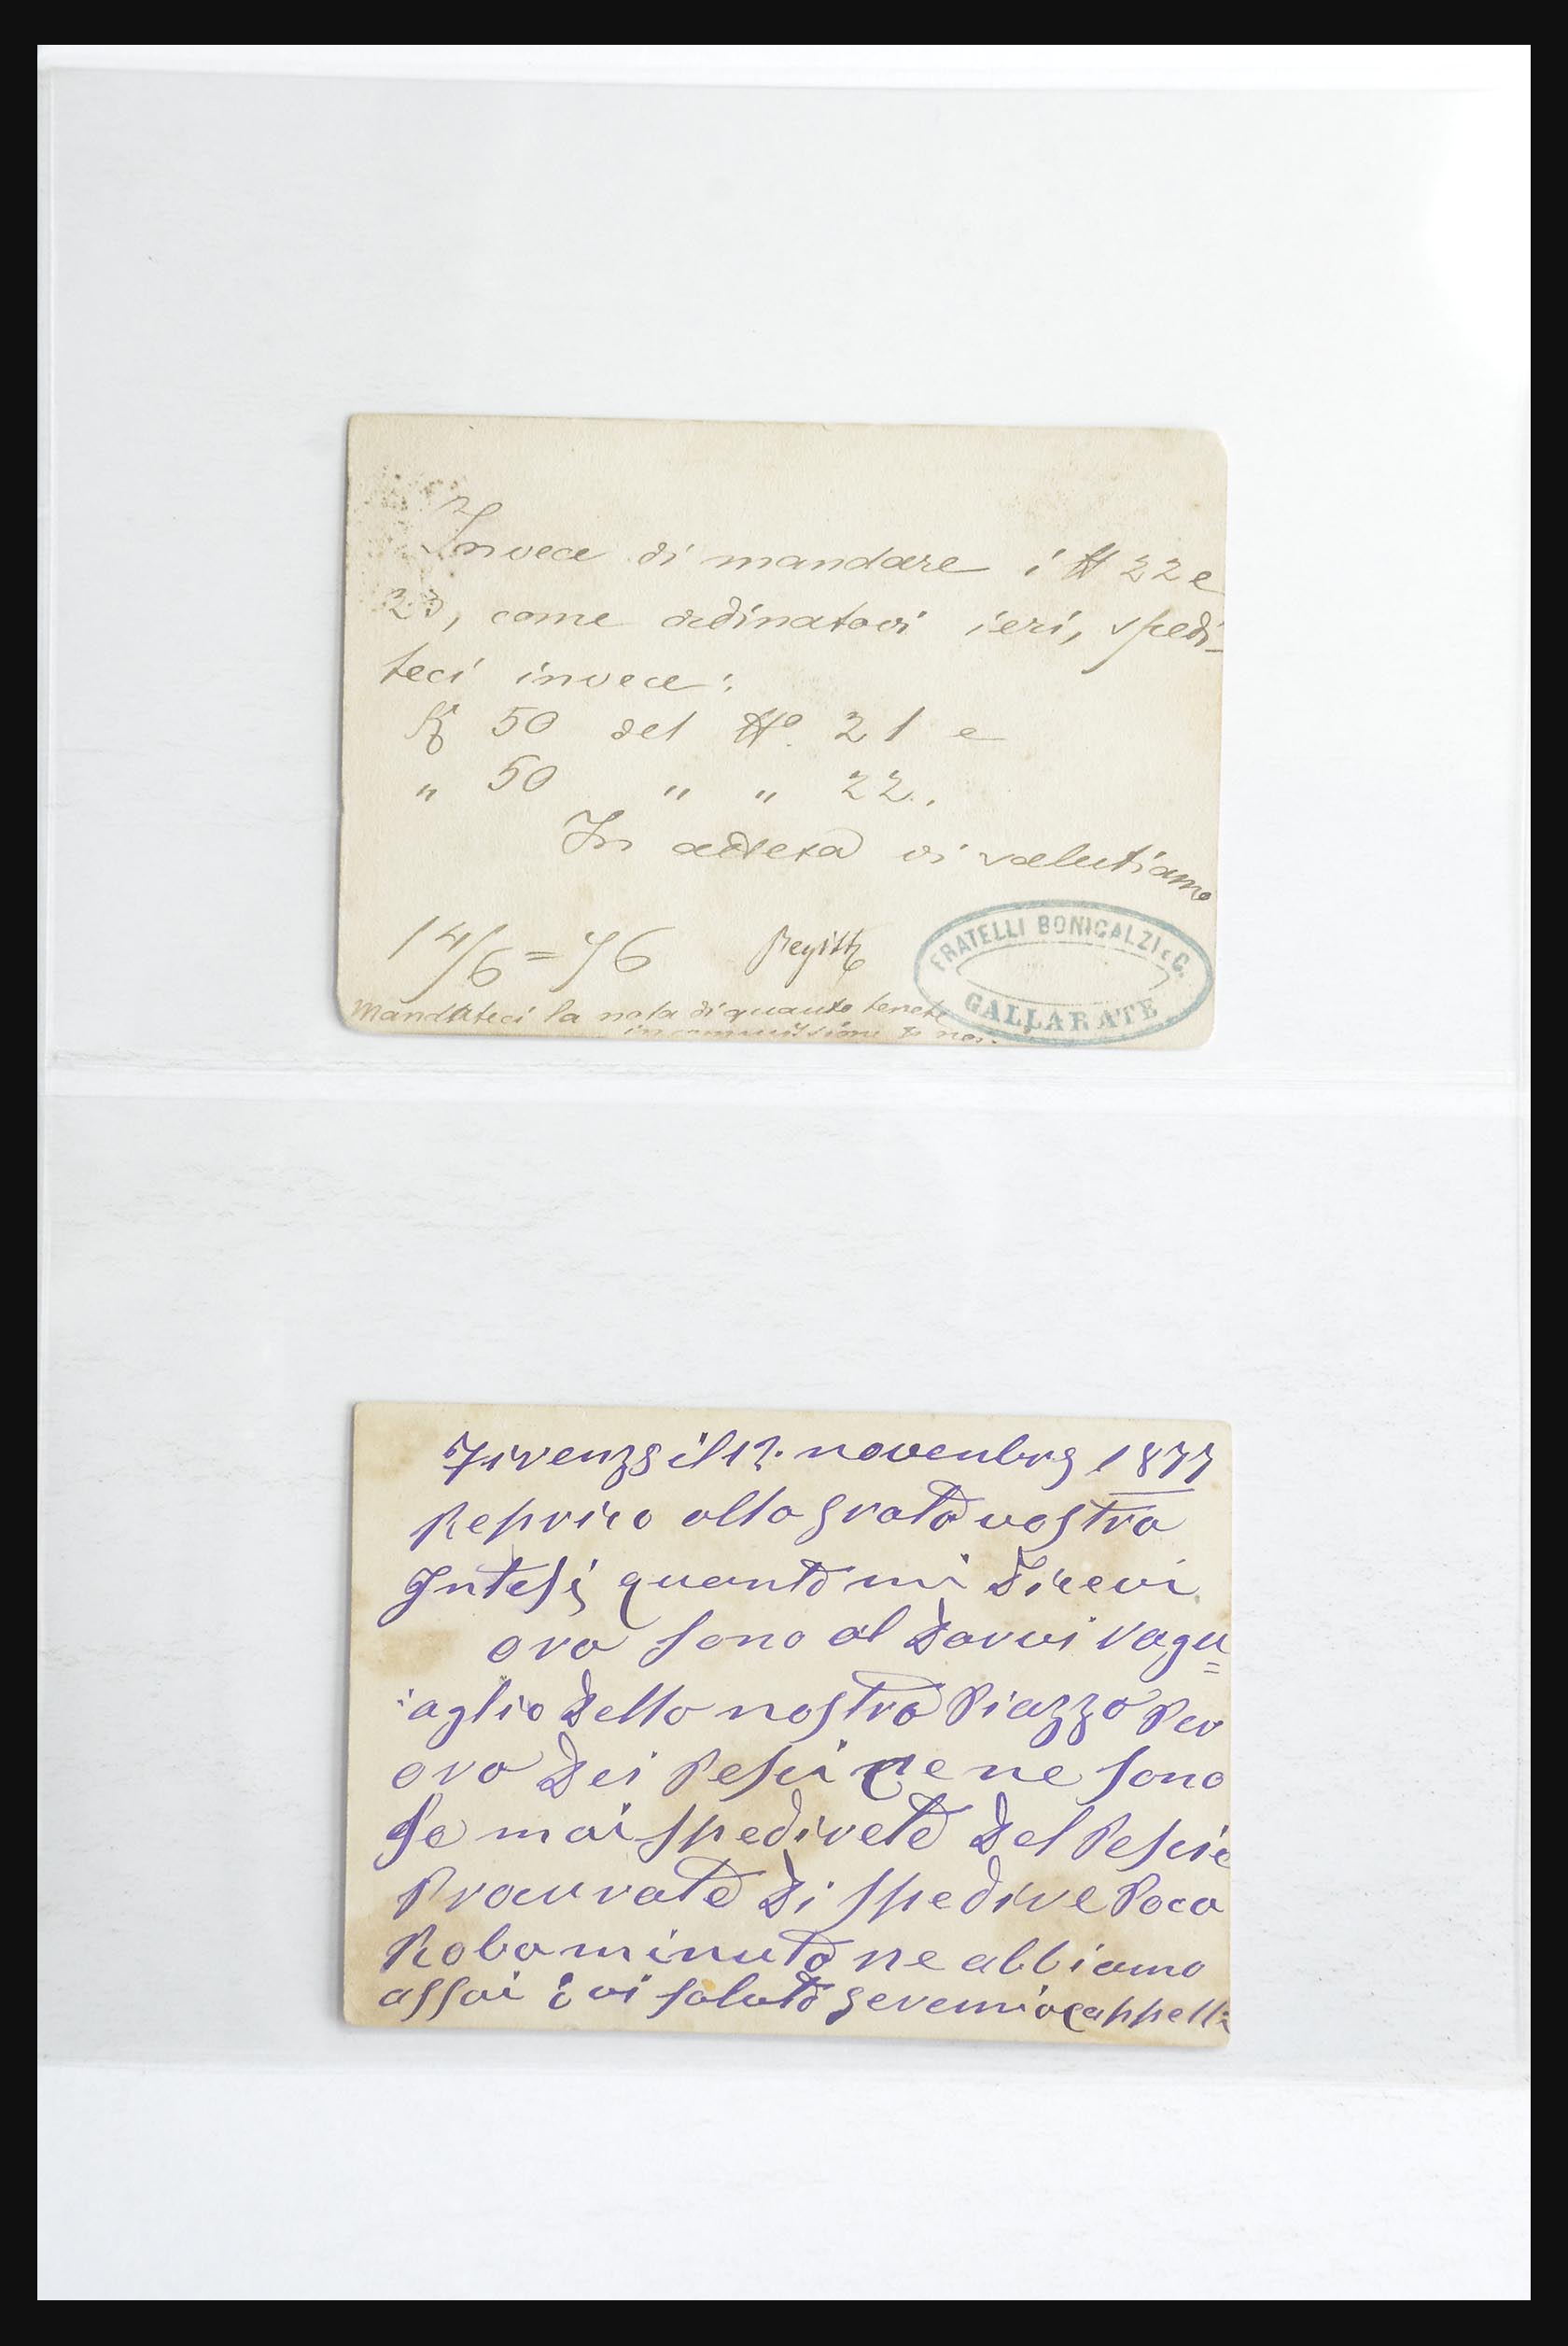 Invece di mandare i N 22 e
23, come ordinatovi ieri, spedi-
teci invece:
K 50 del No. 21 e
" 50 " " 22.
In attesa vi salutiamo
14/6=76
FRATELLI BONICALZI e C.
GALLARATE
Mandateci la nota di quanto tenete
in commissione di noi.
Firenze il 12. novenbre 1877
Reprico alla grata vostra
Intesi quanto mi Dicevi
ora sono al Darvi ragu=
aglio Della nostra Piazza Per
ora Dei Pesci Ce ne sono
Se mai spedirete Del Pescie
Procurate Di spedire Poca
Roba minuta ne abbiamo
assai e vi saluto geremia Cappelli